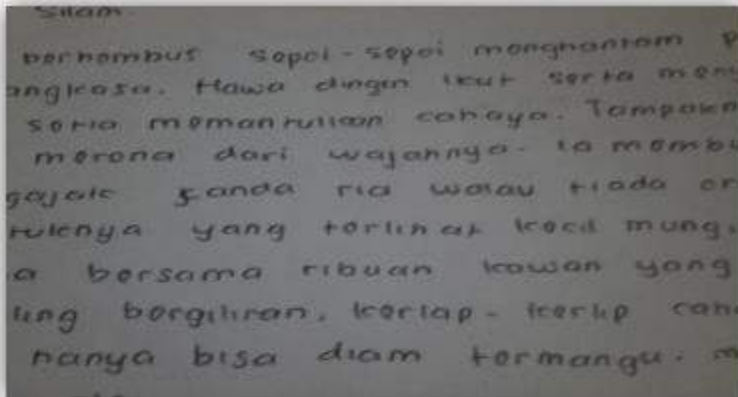 silam
berhembus sepoi-sepoi menghantam P
angkasa. Hawa dingin ikut serta men
setia memantulkan cahaya. Tampak
merona dari wajahnya. Ia membu
gajak canda ria walau tiada or
tuknya yang terlihat kecil mung
a bersama ribuan kawan yang
ling bergiliran. kerlap-kerlip cah
hanya bisa diam termangu. m